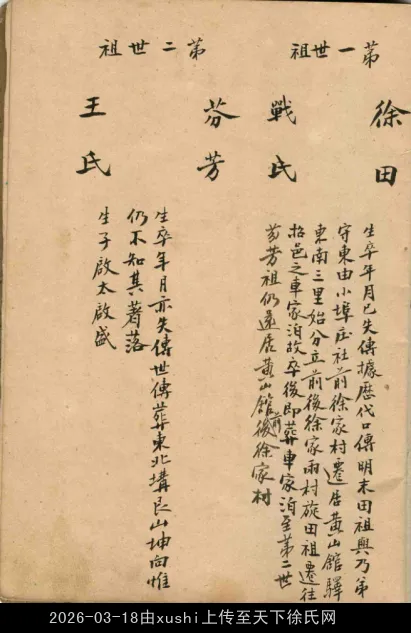 第一世祖
徐田
戰氏
生卒年月已失傳據歷代口傳明末田祖與乃弟
守東由小埠庄社前徐家村遷居黃山館驛
東南三里始分立前後徐家兩村旋田祖遷往
招邑之車家泊故卒後即葬車家泊至第二世
芬芳祖仍還居黃山館前後徐家村
第二世祖
芬芳
王氏
生卒年月亦失傳世傳葬東北堝艮山坤向惟
仍不知其著落
生子啟太啟盛
2026-03-18由xushi上传至天下徐氏网